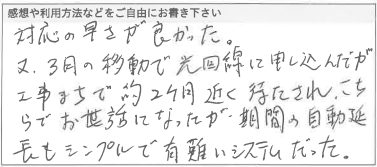 感想や利用方法などをご自由にお書き下さい
対応の早さが良かった。
又、3月の移動で光回線に申し込んだが
工事まちで約2ケ月近く待たされ、こち
らでお世話になったが期間の自動延
長もシンプルで有難いシステムだった。